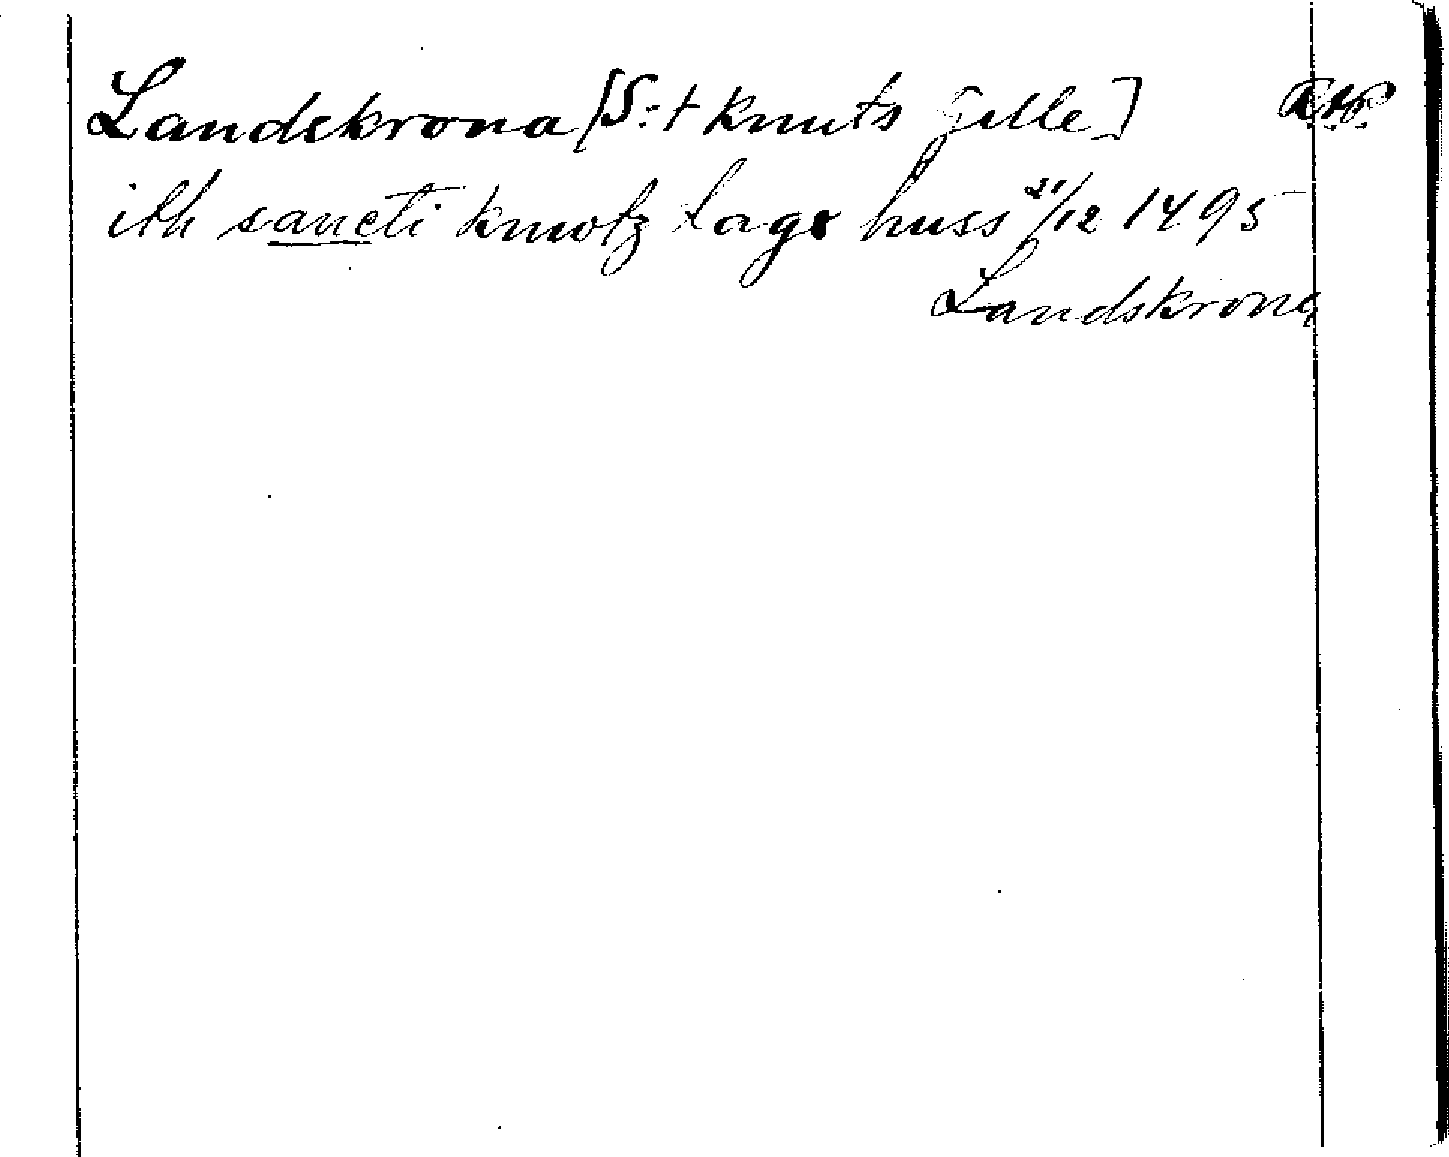 Landskrona [S:t Knuts gille] R.A.P.
ith sancti knwtz lags huss 21/12 1495
Landskrona